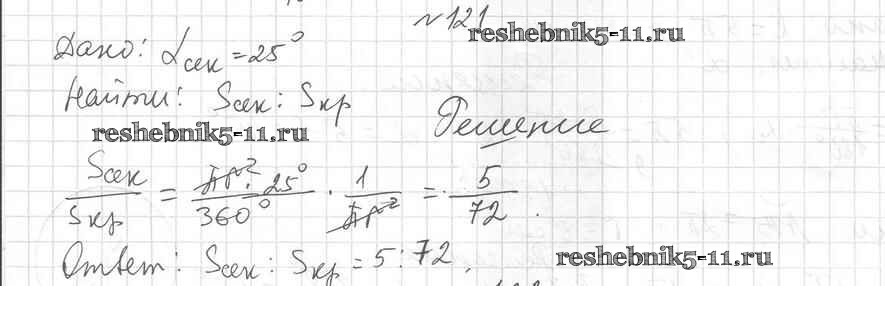 №121
reshebnik5-11.ru
Дано: αсек = 25°
Найти: Sсек : Sкр
reshebnik5-11.ru
Решение
Sсек/Sкр = πr²·25°/360° · 1/πr² = 5/72.
Ответ: Sсек : Sкр = 5:72.
reshebnik5-11.ru